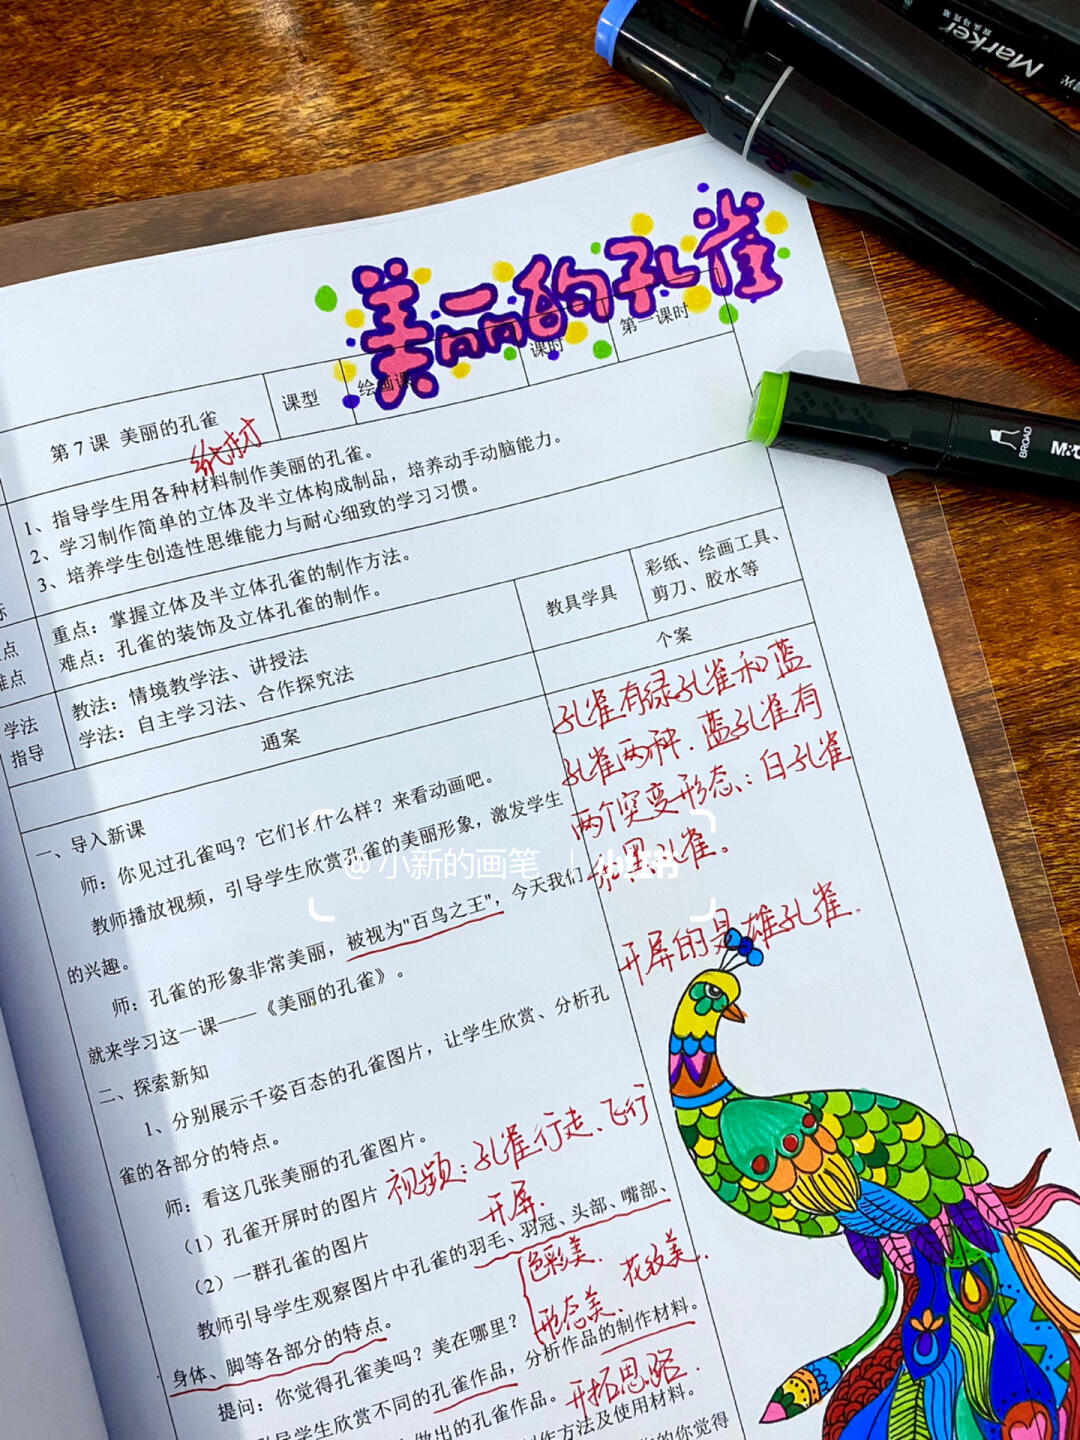 Marker
双头马克笔
BROAD
美丽的孔雀
第7课 美丽的孔雀
课型
绘画课
课时
第一课时
纸材
1、指导学生用各种材料制作美丽的孔雀。
2、学习制作简单的立体及半立体构成制品，培养动手动脑能力。
3、培养学生创造性思维能力与耐心细致的学习习惯。
重点：掌握立体及半立体孔雀的制作方法。
难点：孔雀的装饰及立体孔雀的制作。
教具学具
彩纸、绘画工具、
剪刀、胶水等
学法
指导
教法：情境教学法、讲授法
学法：自主学习法、合作探究法
通案
个案
一、导入新课
师：你见过孔雀吗？它们长什么样？来看动画吧。
教师播放视频，引导学生欣赏孔雀的美丽形象，激发学生
的兴趣。
师：孔雀的形象非常美丽，被视为"百鸟之王"，今天我们
就来学习这一课——《美丽的孔雀》。
二、探索新知
1、分别展示千姿百态的孔雀图片，让学生欣赏、分析孔
雀的各部分的特点。
师：看这几张美丽的孔雀图片。
（1）孔雀开屏时的图片
视频：孔雀行走、飞行
开屏.
（2）一群孔雀的图片
教师引导学生观察图片中孔雀的羽毛、羽冠、头部、嘴部、
身体、脚等各部分的特点。
提问：你觉得孔雀美吗？美在哪里？
色彩美.
花纹美.
形态美.
引导学生欣赏不同的孔雀作品，分析作品的制作材料。
做出的孔雀作品。
开拓思路.
制作方法及使用材料。
你觉得
孔雀有绿孔雀和蓝
孔雀两种.蓝孔雀有
两个突变形态：白孔雀
和黑孔雀。
开屏的是雄孔雀.
@小新的画笔 | 小红书